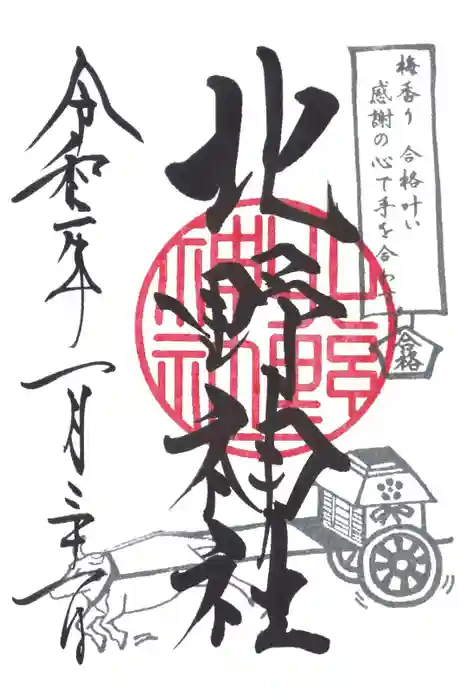 梅香り 合格叶い
感謝の心で手を合わ
合格
北野神社
北野
神社
令和二年 一月三十一日